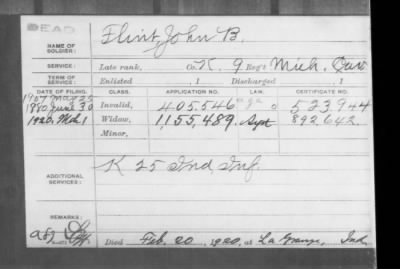 DEAD
NAME OF SOLDIER: Flint, John B.
SERVICE: Late rank, Co. K. 9 Reg't Mich. Cav
TERM OF SERVICE: Enlisted , 1 Discharged , 1
DATE OF FILING. CLASS. APPLICATION NO. LAW. CERTIFICATE NO.
1907 Mar 25
1880 June 30 Invalid, 405.546 age 523,944
1920. Mch 1 Widow, 1,155,489. Sept 892642.
Minor,
ADDITIONAL SERVICES: K 25 Ind Inf.
REMARKS:
Died Feb. 20, 1920, at La Grange, Ind